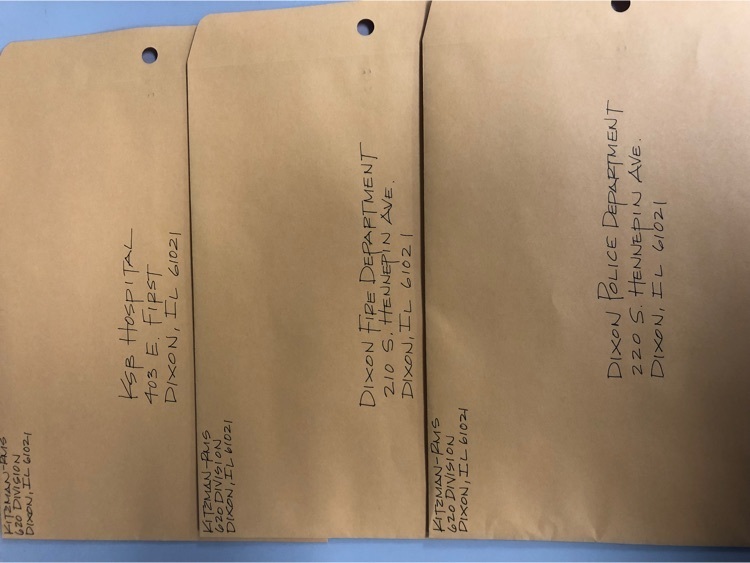 KSB HOSPITAL
403 E. FIRST
DIXON, IL 61021
KITZMAN-RMS
620 DIVISION
DIXON, IL 61021
DIXON FIRE DEPARTMENT
210 S. HENNEPIN AVE.
DIXON, IL 61021
KITZMAN-RMS
620 DIVISION
DIXON, IL 61021
DIXON POLICE DEPARTMENT
220 S. HENNEPIN AVE.
DIXON, IL 61021
KITZMAN-RMS
620 DIVISION
DIXON, IL 61021